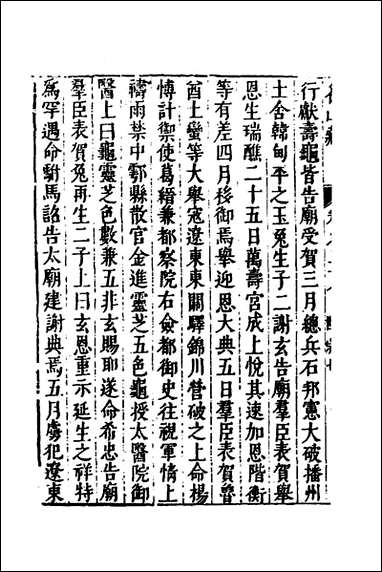 行獻壽龜皆告廟受賀三月總兵石邦憲大破播州
土舍韓甸平之玉兔生子二謝玄告廟羣臣表賀舉
恩生瑞醮二十五日萬壽宮成上悅其速加恩階銜
等有差四月移御焉舉迎恩大典五日羣臣表賀魯
酋土蠻等大舉寇遼東東關驛錦川營破之上命楊
博計禦使葛縉兼都察院右僉都御史往視軍情上
禱雨禁中鄠縣散官金進靈芝五色龜授太醫院御
醫上曰龜靈芝色數兼五非玄賜耶遂命希忠告廟
羣臣表賀兔再生二子上曰玄恩重示延生之祥特
爲罕遇命駙馬詔告太廟建謝典焉五月虜犯遼東